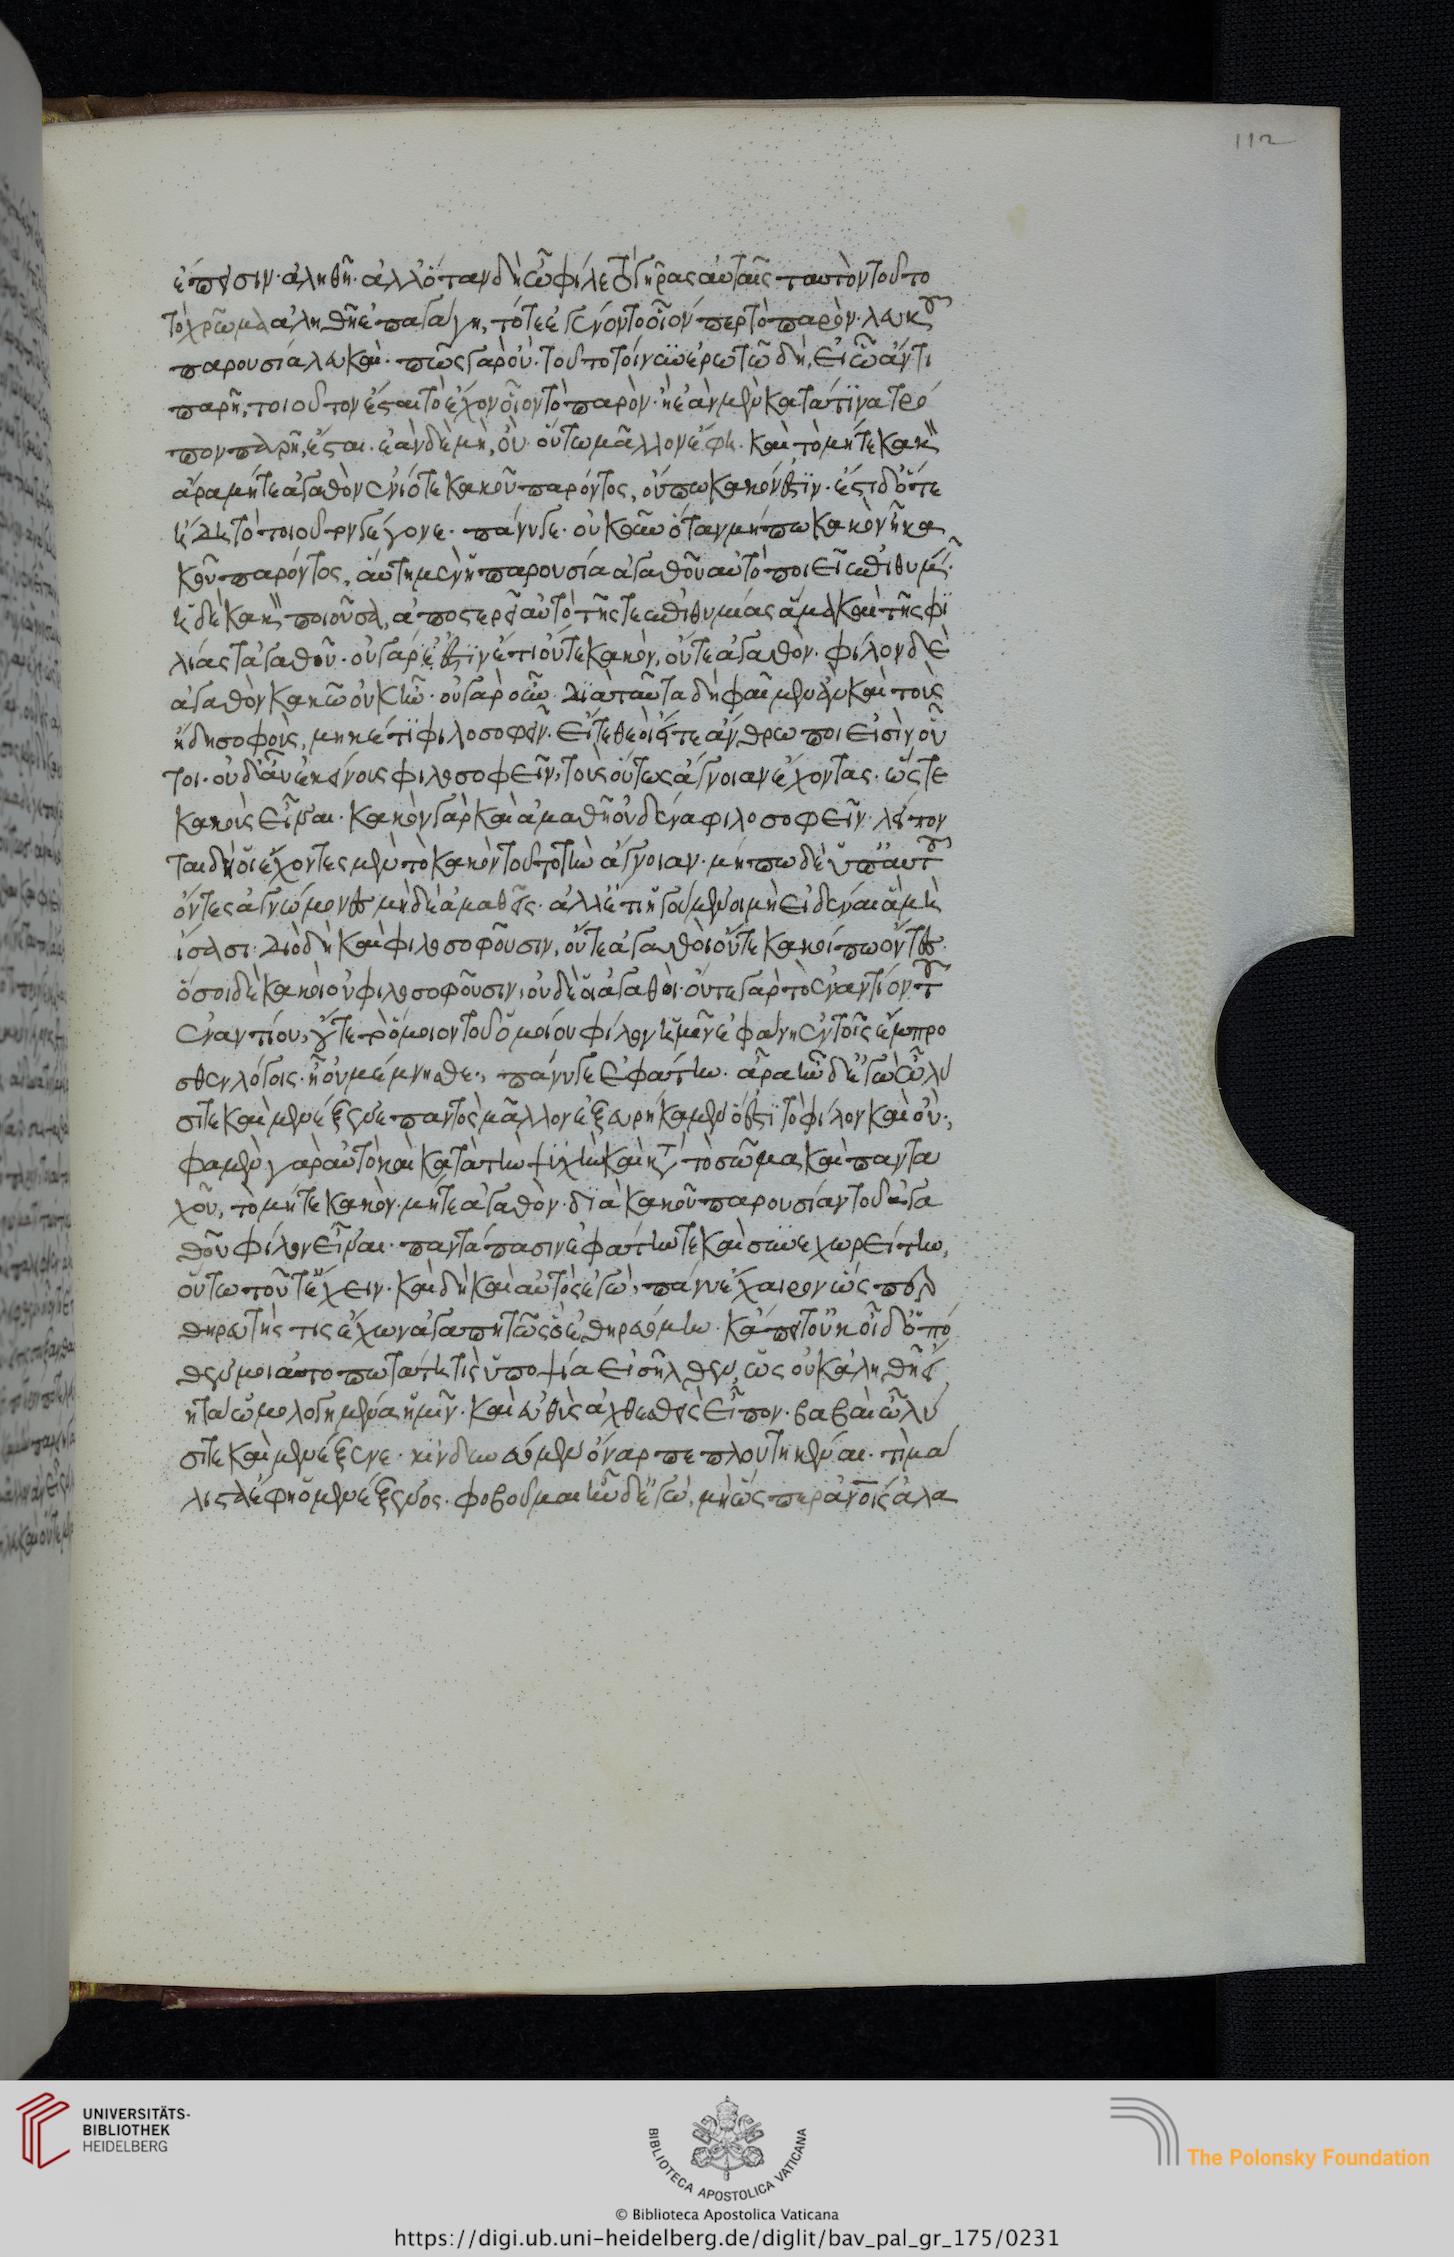 ἔπεισιν· ἀληθῆ· ἀλλ' ὅταν δὴ ὦ φίλε τὸ γῆρας αὐταῖς ταυτὸν τοῦτο
τὸ χρῶμα ἀληθῆ ἐπαγάγη, τότε ἐγένοντο οἷόν περ τὸ παρὸν· λευκοῦ
παρουσία λευκαὶ· πῶς γὰρ οὔ· τοῦτο τοίνυν ἐρωτῶ δὴ, εἰ ὧ ἄν τι
παρῆ, τοιοῦτον ἔσται τὸ ἔχον οἷον τὸ παρὸν· ἢ ἐὰν μὲν κατά τινα τρό
πον παρῆ, ἔσται· ἐὰν δὲ μὴ, οὔ· οὕτω μᾶλλον ἔφη· καὶ τὸ μήτε κακὸν
ἄρα μήτε ἀγαθὸν ἐνίοτε κακοῦ παρόντος, οὔπω κακόν ἐστιν· ἔστι δ' ὅτε
ἤδη τὸ τοιοῦτον γέγονε· πάνυ γε· οὐκοῦν ὅταν μήπω κακὸν ἦ κα
κοῦ παρόντος, αὕτη μὲν ἡ παρουσία ἀγαθοῦ αὐτὸ ποιεῖ ἐπιθυμεῖν·
ἡ δὲ κακὸν ποιοῦσα, ἀποστερεῖ αὐτὸ τῆς τε ἐπιθυμίας ἅμα καὶ τῆς φι
λίας τἀγαθοῦ· οὐ γάρ ἐστιν ἔτι οὔτε κακὸν, οὔτε ἀγαθὸν· φίλον δὲ
ἀγαθὸν κακῶ οὐκ ἦν· οὐ γὰρ οὖν· διὰ ταῦτα δὴ φαῖμεν ἂν καὶ τοὺς
ἤδη σοφοὺς, μηκέτι φιλοσοφεῖν· εἴτε θεοὶ εἴτε ἄνθρωποι εἰσὶν οὗ
τοι· οὐδ' ἂν ἐκείνοις φιλοσοφεῖν, τοὺς οὕτως ἄγνοιαν ἔχοντας· ὥστε
κακοὺς εἶναι· κακὸν γὰρ καὶ ἀμαθῆ οὐδένα φιλοσοφεῖν· λείπον
ται δὴ οἱ ἔχοντες μὲν τὸ κακὸν τοῦτο τὴν ἄγνοιαν· μήπω δὲ ὑπ' αὐτοῦ
ὄντες ἀγνώμονες μὴδὲ ἀμαθεῖς· ἀλλ' ἔτι ἡγούμενοι μὴ εἰδέναι ἃ μὴ
ἴσασι· διὸ δὴ καὶ φιλοσοφοῦσιν, οὔτε ἀγαθοὶ οὔτε κακοί πω ὄντες·
ὅσοι δὲ κακοὶ οὐ φιλοσοφοῦσιν, οὐδὲ οἱ ἀγαθοί· οὔτε γὰρ τὸ ἐναντίον τοῦ
ἐναντίου, οὔτε τὸ ὅμοιον τοῦ ὁμοίου φίλον ἡμῖν ἐφάνη ἐν τοῖς ἔμπρο
σθεν λόγοις· ἢ οὐ μέμνησθε; πάνυ γε ἐφάτην· ἆρα νῦν δ' ἐγὼ ὦ λύ
σι τε καὶ μενέξενε παντὸς μᾶλλον ἐξευρήκαμεν ὅ ἐστι τὸ φίλον καὶ οὔ;
φαμὲν γὰρ αὐτὸ καὶ κατὰ τὴν ψυχὴν καὶ κατὰ τὸ σῶμα, καὶ παντα
χοῦ, τὸ μήτε κακὸν· μήτε ἀγαθὸν· διὰ κακοῦ παρουσίαν τοῦ ἀγα
θοῦ φίλον εἶναι· παντάπασιν ἐφάτην τε καὶ συνεχωρείτην,
οὕτω τοῦτ' ἔχειν· καὶ δὴ καὶ αὐτὸς ἐγὼ, πάνυ ἔχαιρον ὡς περ
θηρευτής τις ἔχων ἀγαπητῶς ὃ ἐθηρευόμην· κἄπειτ' οὐκ οἶδ' ὁπό
θεν μοι ἀτοπωτάτη τὶς ὑποψία εἰσῆλθεν, ὡς οὐκ ἀληθῆ εἴ
η τὰ ὡμολογημένα ἡμῖν· καὶ εὐθὺς ἀχθεσθεὶς εἶπον· βαβαὶ ὦ λύ
σι τε καὶ μενέξενε· κινδυνεύομεν ὄναρ πεπλουτηκέναι· τὶ μά
λιστα ἔφη ὁ μενέξενος· φοβοῦμαι ἦν δ' ἐγὼ, μὴ ὥσπερ ἀνοις ἀλα
112
UNIVERSITÄTS-
BIBLIOTHEK
HEIDELBERG
BIBLIOTECA APOSTOLICA VATICANA
The Polonsky Foundation
© Biblioteca Apostolica Vaticana
https://digi.ub.uni-heidelberg.de/diglit/bav_pal_gr_175/0231